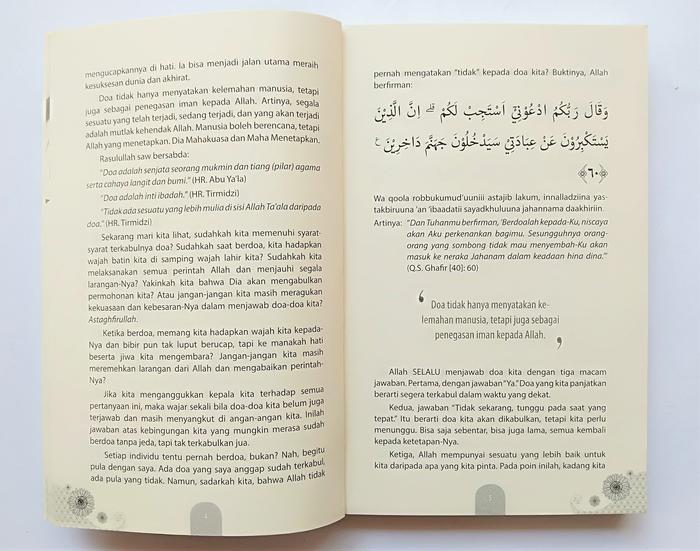 mengucapkannya di hati. Ia bisa menjadi jalan utama meraih
kesuksesan dunia dan akhirat.
Doa tidak hanya menyatakan kelemahan manusia, tetapi
juga sebagai penegasan iman kepada Allah. Artinya, segala
sesuatu yang telah terjadi, sedang terjadi, dan yang akan terjadi
adalah mutlak kehendak Allah. Manusia boleh berencana, tetapi
Allah yang menetapkan. Dia Mahakuasa dan Maha Menetapkan.
Rasulullah saw bersabda:
"Doa adalah senjata seorang mukmin dan tiang (pilar) agama
serta cahaya langit dan bumi." (HR. Abu Ya'la)
"Doa adalah inti ibadah." (HR. Tirmidzi)
"Tidak ada sesuatu yang lebih mulia di sisi Allah Ta'ala daripada
doa." (HR. Tirmidzi)
Sekarang mari kita lihat, sudahkah kita memenuhi syarat-
syarat terkabulnya doa? Sudahkah saat berdoa, kita hadapkan
wajah batin kita di samping wajah lahir kita? Sudahkah kita
melaksanakan semua perintah Allah dan menjauhi segala
larangan-Nya? Yakinkah kita bahwa Dia akan mengabulkan
permohonan kita? Atau jangan-jangan kita masih meragukan
kekuasaan dan kebesaran-Nya dalam menjawab doa-doa kita?
Astaghfirullah.
Ketika berdoa, memang kita hadapkan wajah kita kepada-
Nya dan bibir pun tak luput berucap, tapi ke manakah hati
beserta jiwa kita mengembara? Jangan-jangan kita masih
meremehkan larangan dari Allah dan mengabaikan perintah-
Nya?
Jika kita menganggukkan kepala kita terhadap semua
pertanyaan ini, maka wajar sekali bila doa-doa kita belum juga
terjawab dan masih menyangkut di angan-angan kita. Inilah
jawaban atas kebingungan kita yang mungkin merasa sudah
berdoa tanpa jeda, tapi tak terkabulkan jua.
Setiap individu tentu pernah berdoa, bukan? Nah, begitu
pula dengan saya. Ada doa yang saya anggap sudah terkabul,
ada pula yang tidak. Namun, sadarkah kita, bahwa Allah tidak
4
pernah mengatakan "tidak" kepada doa kita? Buktinya, Allah
berfirman:
وَقَالَ رَبُّكُمُ ادْعُوْنِيْٓ اَسْتَجِبْ لَكُمْ ۗ اِنَّ الَّذِيْنَ
يَسْتَكْبِرُوْنَ عَنْ عِبَادَتِيْ سَيَدْخُلُوْنَ جَهَنَّمَ دَاخِرِيْنَ ࣖ
﴿٦٠﴾
Wa qoola robbukumud'uuniii astajib lakum, innalladziina yas-
takbiruuna 'an 'ibaadatii sayadkhuluuna jahannama daakhiriin.
Artinya: "Dan Tuhanmu berfirman, 'Berdoalah kepada-Ku, niscaya
akan Aku perkenankan bagimu. Sesungguhnya orang-
orang yang sombong tidak mau menyembah-Ku akan
masuk ke neraka Jahanam dalam keadaan hina dina.'"
(Q.S. Ghafir [40]: 60)
‘ Doa tidak hanya menyatakan ke-
lemahan manusia, tetapi juga sebagai
penegasan iman kepada Allah. ’
Allah SELALU menjawab doa kita dengan tiga macam
jawaban. Pertama, dengan jawaban "Ya." Doa yang kita panjatkan
berarti segera terkabul dalam waktu yang dekat.
Kedua, jawaban "Tidak sekarang, tunggu pada saat yang
tepat." Itu berarti doa kita akan dikabulkan, tetapi kita perlu
menunggu. Bisa saja sebentar, bisa juga lama, semua kembali
kepada ketetapan-Nya.
Ketiga, Allah mempunyai sesuatu yang lebih baik untuk
kita daripada apa yang kita pinta. Pada poin inilah, kadang kita
5